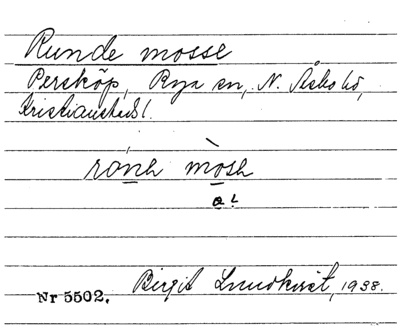 Runde mosse
Persköp, Rya sn, N. Åsbo hd,
Kristianstads l.
rónh mòsh
a!
Nr 5502. Birgit Lundkvist, 1938.